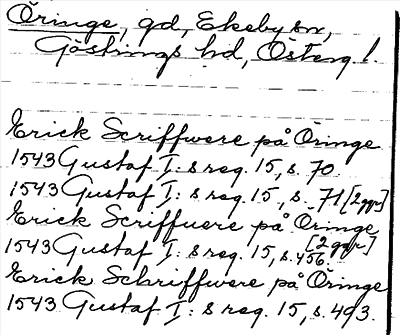 Öringe, gd, Ekeby sn,
Göstrings hd, Österg l.
Erick Scriffwere på Öringe
1543 Gustaf I:s reg. 15, s. 70.
1543 Gustaf I:s reg. 15, s. 71 [2ggr]
Erick Scriffuere på Öringe
1543 Gustaf I:s reg. 15, s. 456. [2ggr]
Erick Schriffwere på Öringe
1543 Gustaf I:s reg. 15, s. 493.